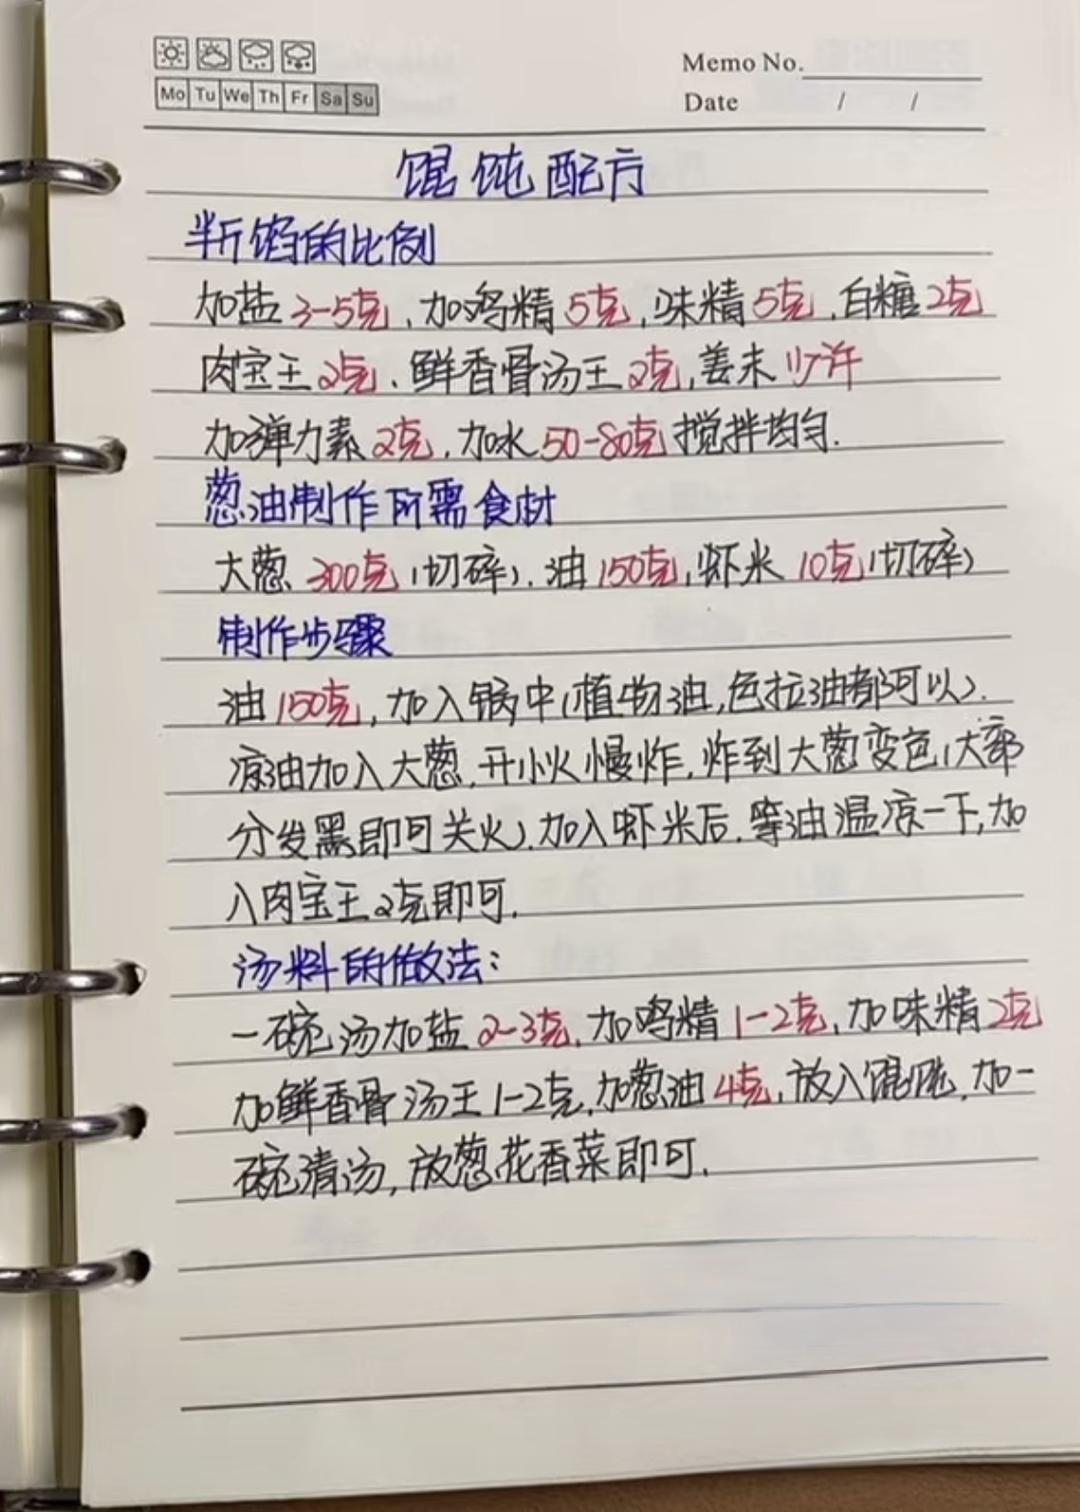 Memo No.
Mo Tu We Th Fr Sa Su
Date / /
馄饨配方
半斤馅的比例
加盐3-5克,加鸡精5克,味精5克,白糖2克
肉宝王2克、鲜香骨汤王2克,姜末少许
加弹力素2克,加水50-80克搅拌均匀.
葱油制作所需食材
大葱300克(切碎).油150克,虾米10克(切碎)
制作步骤
油150克,加入锅中(植物油,色拉油都可以).
凉油加入大葱,开小火慢炸,炸到大葱变色(大部
分发黑即可关火).加入虾米后.等油温凉一下,加
入肉宝王2克即可.
汤料的做法:
一碗汤加盐2-3克,加鸡精1-2克,加味精2克
加鲜香骨汤王1-2克,加葱油4克,放入馄饨,加一
碗清汤,放葱花香菜即可.